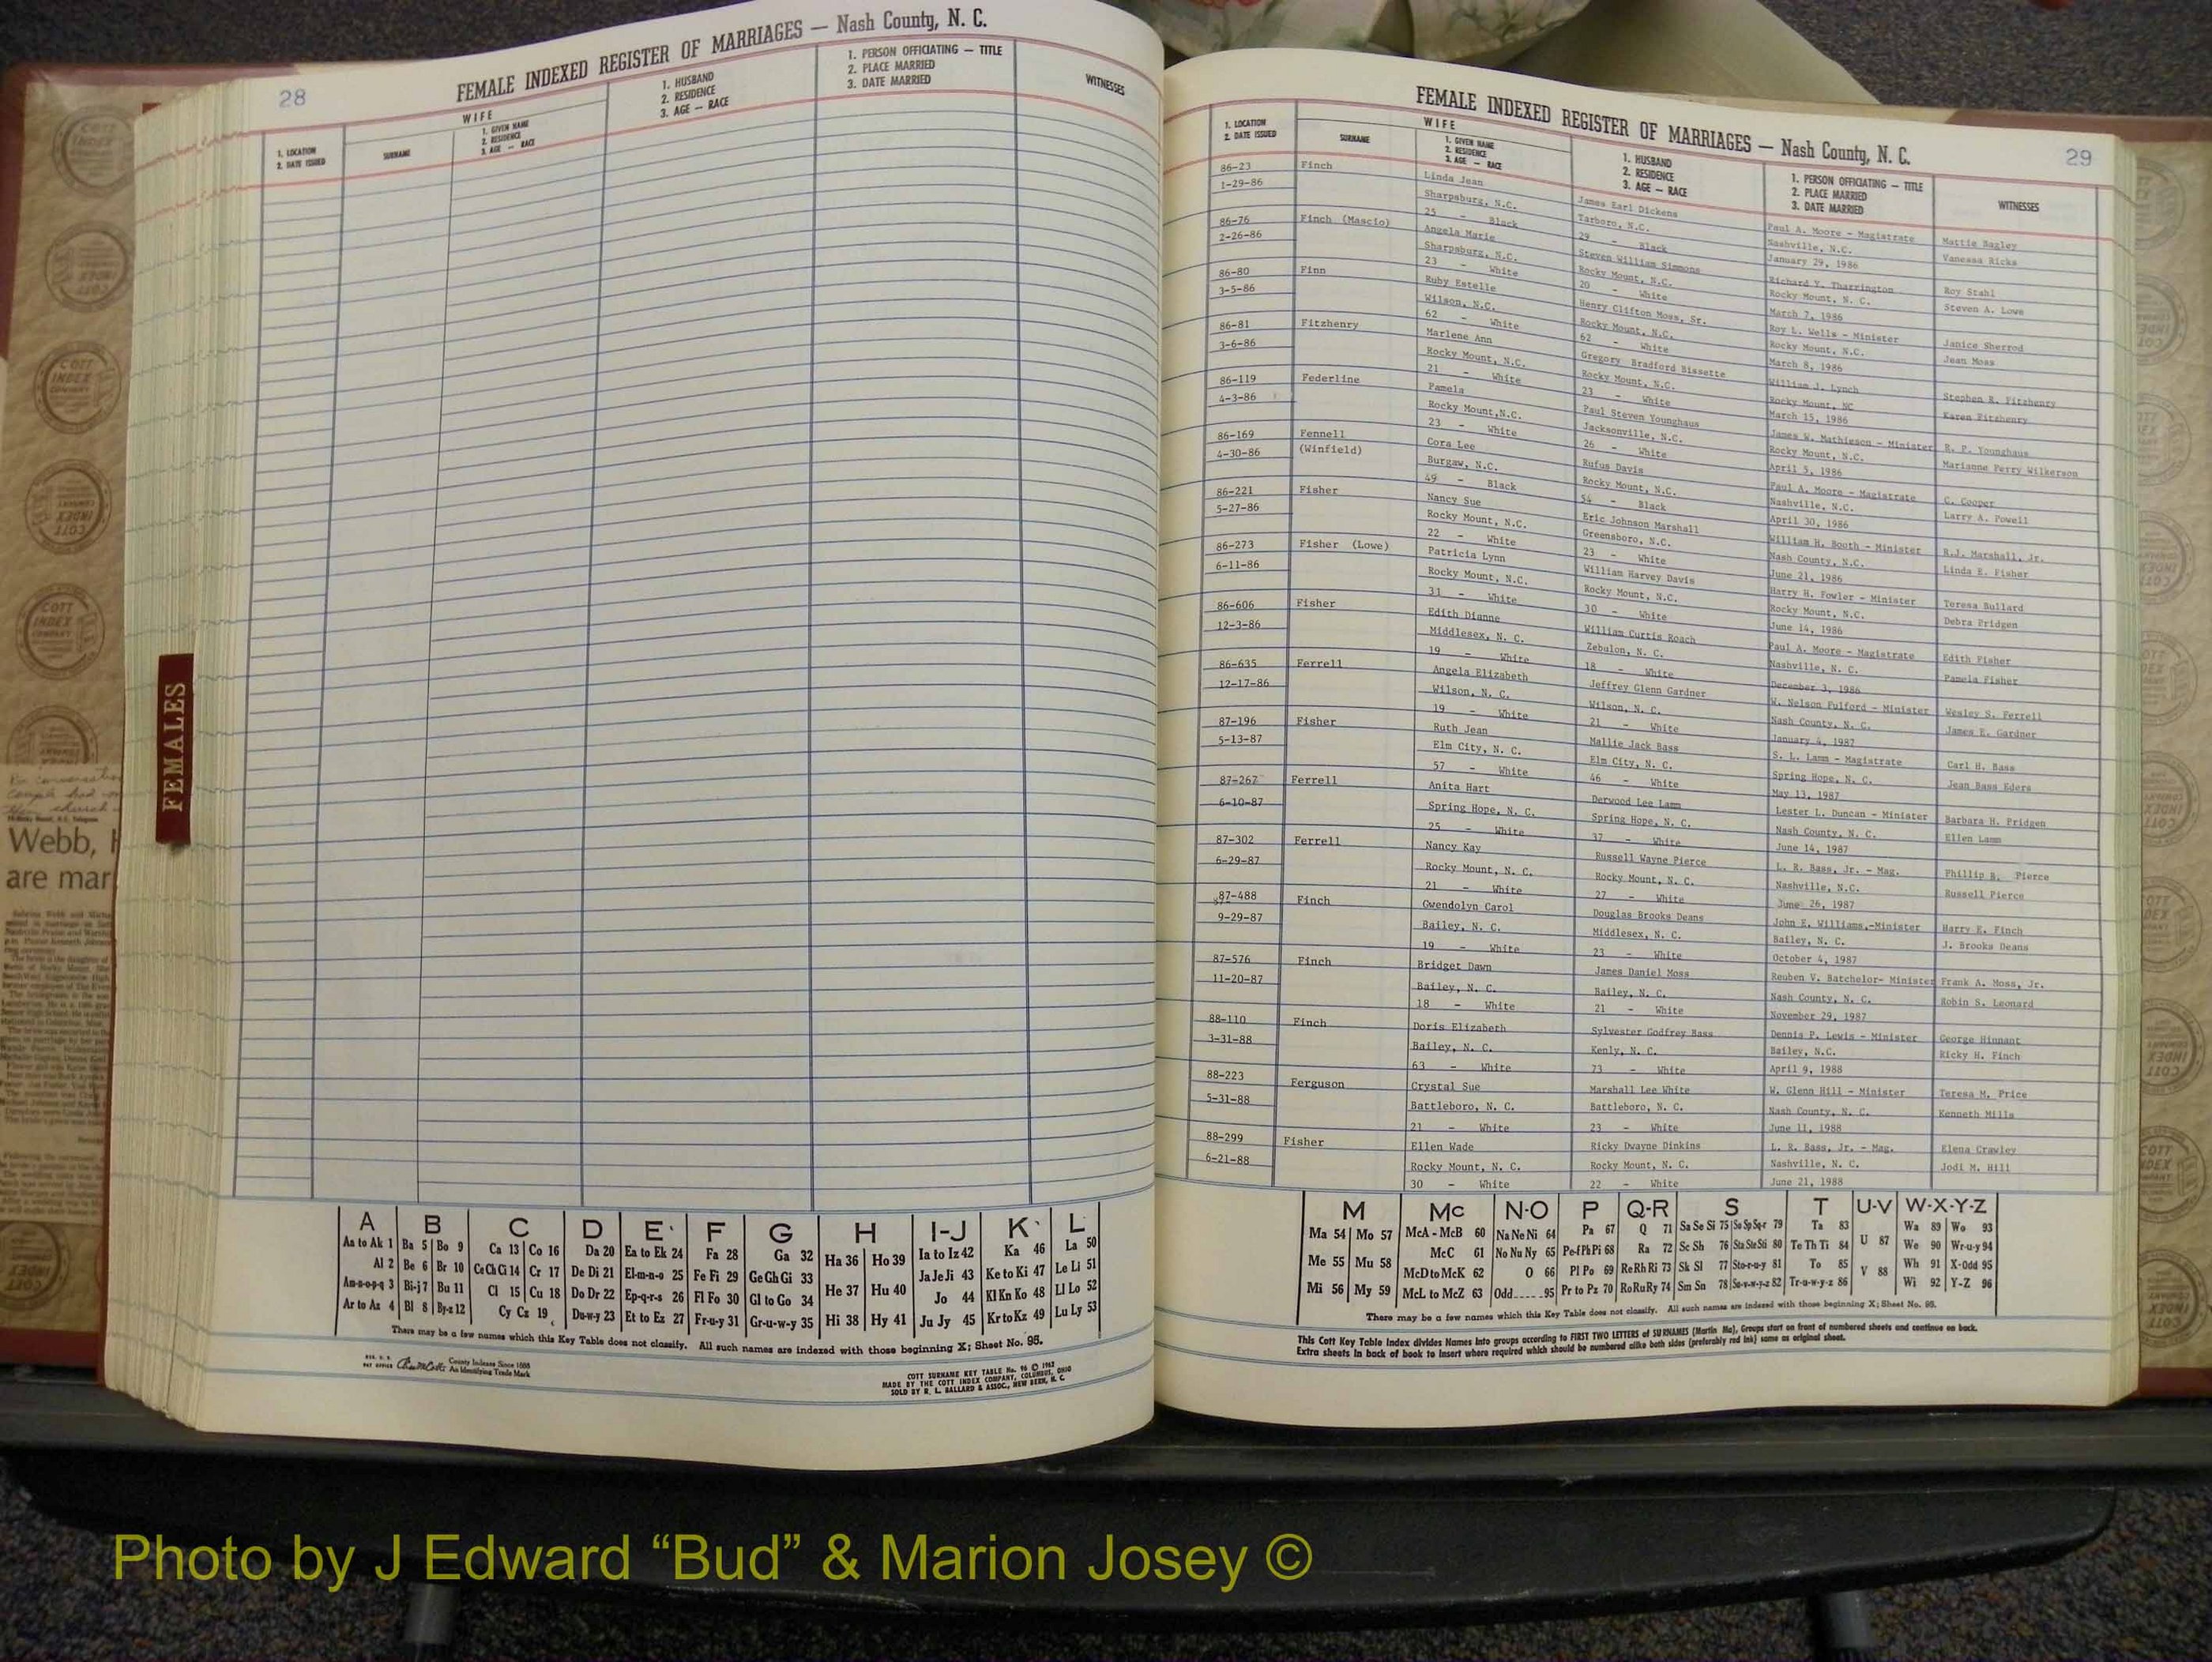 28
FEMALE INDEXED REGISTER OF MARRIAGES — Nash County, N. C.
1. LOCATION
2. DATE ISSUED
SURNAME
WIFE
1. GIVEN NAME
2. RESIDENCE
3. AGE — RACE
1. HUSBAND
2. RESIDENCE
3. AGE — RACE
1. PERSON OFFICIATING — TITLE
2. PLACE MARRIED
3. DATE MARRIED
WITNESSES
FEMALES
Webb,
are mar
A B C D E F G H I-J K L
Aa to Ak 1 Ba 5 Bo 9 Ca 13 Co 16 Da 20 Ea to Ek 24 Fa 28 Ga 32 Ha 36 Ho 39 Ia to Iz 42 Ka 46 La 50
Al 2 Be 6 Br 10 Ce Ch Ci 14 Cr 17 De Di 21 El-m-n-o 25 Fe Fi 29 Ge Gh Gi 33 He 37 Hu 40 Ja Je Ji 43 Ke to Ki 47 Le Li 51
An-o-p-q 3 Bi-j 7 Bu 11 Cl 15 Cu 18 Do Dr 22 Ep-q-r-s 26 Fl Fo 30 Gl to Go 34 Jo 44 Kl Kn Ko 48 Ll Lo 52
Ar to Az 4 Bl 8 By-z 12 Cy Cz 19 Du-w-y 23 Et to Ez 27 Fr-u-y 31 Gr-u-w-y 35 Hi 38 Hy 41 Ju Jy 45 Kr to Kz 49 Lu Ly 53
There may be a few names which this Key Table does not classify. All such names are indexed with those beginning X; Sheet No. 95.
County Indexes Since 1888
An Identifying Trade Mark
COTT SURNAME KEY TABLE No. 96 © 1962
MADE BY THE COTT INDEX COMPANY, COLUMBUS, OHIO
SOLD BY R. L. BALLARD & ASSOC., NEW BERN, N. C.
FEMALE INDEXED REGISTER OF MARRIAGES — Nash County, N. C.
29
1. LOCATION
2. DATE ISSUED
SURNAME
WIFE
1. GIVEN NAME
2. RESIDENCE
3. AGE — RACE
1. HUSBAND
2. RESIDENCE
3. AGE — RACE
1. PERSON OFFICIATING — TITLE
2. PLACE MARRIED
3. DATE MARRIED
WITNESSES
86-23 Finch Linda Jean James Earl Dickens Paul A. Moore - Magistrate Mattie Bagley
1-29-86 Sharpsburg, N.C. Tarboro, N.C. Nashville, N.C. Vanessa Ricks
25 - Black 29 - Black January 29, 1986
86-76 Finch (Mascio) Angela Marie Steven William Simmons Richard Y. Tharrington Roy Stahl
2-26-86 Sharpsburg, N.C. Rocky Mount, N.C. Rocky Mount, N. C. Steven A. Lowe
23 - White 20 - White March 7, 1986
86-80 Finn Ruby Estelle Henry Clifton Moss, Sr. Roy L. Wells - Minister Janice Sherrod
3-5-86 Wilson, N.C. Rocky Mount, N.C. Rocky Mount, N.C. Jean Moss
62 - White 62 - White March 8, 1986
86-81 Fitzhenry Marlene Ann Gregory Bradford Bissette William J. Lynch Stephen R. Fitzhenry
3-6-86 Rocky Mount, N.C. Rocky Mount, N.C. Rocky Mount, NC Karen Fitzhenry
21 - White 23 - White March 15, 1986
86-119 Federline Pamela Paul Steven Younghaus James W. Mathieson - Minister R. P. Younghaus
4-3-86 Rocky Mount,N.C. Jacksonville, N.C. Rocky Mount, N.C. Marianne Perry Wilkerson
23 - White 26 - White April 5, 1986
86-169 Fennell Cora Lee Rufus Davis Paul A. Moore - Magistrate C. Cooper
4-30-86 (Winfield) Burgaw, N.C. Rocky Mount, N.C. Nashville, N.C. Larry A. Powell
49 - Black 54 - Black April 30, 1986
86-221 Fisher Nancy Sue Eric Johnson Marshall William H. Booth - Minister R.J. Marshall, Jr.
5-27-86 Rocky Mount, N.C. Greensboro, N.C. Nash County, N.C. Linda E. Fisher
22 - White 23 - White June 21, 1986
86-273 Fisher (Lowe) Patricia Lynn William Harvey Davis Harry H. Fowler - Minister Teresa Bullard
6-11-86 Rocky Mount, N.C. Rocky Mount, N.C. Rocky Mount, N.C. Debra Pridgen
31 - White 30 - White June 14, 1986
86-606 Fisher Edith Dianne William Curtis Roach Paul A. Moore - Magistrate Edith Fisher
12-3-86 Middlesex, N. C. Zebulon, N. C. Nashville, N. C. Pamela Fisher
19 - White 18 - White December 3, 1986
86-635 Ferrell Angela Elizabeth Jeffrey Glenn Gardner W. Nelson Fulford - Minister Wesley S. Ferrell
12-17-86 Wilson, N. C. Wilson, N. C. Nash County, N. C. James E. Gardner
19 - White 21 - White January 4, 1987
87-196 Fisher Ruth Jean Mallie Jack Bass S. L. Lamm - Magistrate Carl H. Bass
5-13-87 Elm City, N. C. Elm City, N. C. Spring Hope, N. C. Jean Bass Eders
57 - White 46 - White May 13, 1987
87-267 Ferrell Anita Hart Derwood Lee Lamm Lester L. Duncan - Minister Barbara H. Pridgen
6-10-87 Spring Hope, N. C. Spring Hope, N. C. Nash County, N. C. Ellen Lamm
25 - White 37 - White June 14, 1987
87-302 Ferrell Nancy Kay Russell Wayne Pierce L. R. Bass, Jr. - Mag. Phillip B. Pierce
6-29-87 Rocky Mount, N. C. Rocky Mount, N. C. Nashville, N.C. Russell Pierce
21 - White 27 - White June 26, 1987
87-488 Finch Gwendolyn Carol Douglas Brooks Deans John E. Williams,-Minister Harry E. Finch
9-29-87 Bailey, N. C. Middlesex, N. C. Bailey, N. C. J. Brooks Deans
19 - White 23 - White October 4, 1987
87-576 Finch Bridget Dawn James Daniel Moss Reuben V. Batchelor- Minister Frank A. Moss, Jr.
11-20-87 Bailey, N. C. Bailey, N. C. Nash County, N. C. Robin S. Leonard
18 - White 21 - White November 29, 1987
88-110 Finch Doris Elizabeth Sylvester Godfrey Bass Dennis P. Lewis - Minister George Hinnant
3-31-88 Bailey, N. C. Kenly, N. C. Bailey, N.C. Ricky H. Finch
63 - White 73 - White April 9, 1988
88-223 Ferguson Crystal Sue Marshall Lee White W. Glenn Hill - Minister Teresa M. Price
5-31-88 Battleboro, N. C. Battleboro, N. C. Nash County, N. C. Kenneth Mills
21 - White 23 - White June 11, 1988
88-299 Fisher Ellen Wade Ricky Dwayne Dinkins L. R. Bass, Jr. - Mag. Elena Crawley
6-21-88 Rocky Mount, N. C. Rocky Mount, N. C. Nashville, N. C. Jodi M. Hill
30 - White 22 - White June 21, 1988
M Mc N-O P Q-R S T U-V W-X-Y-Z
Ma 54 Mo 57 McA - McB 60 Na Ne Ni 64 Pa 67 Q 71 Sa Se Si 75 So Sp Sq-r 79 Ta 83 U 87 Wa 89 Wo 93
Me 55 Mu 58 McC 61 No Nu Ny 65 Pe-f Ph Pi 68 Ra 72 Sc Sh 76 Sta Ste Sti 80 Te Th Ti 84 We 90 Wr-u-y 94
McD to McK 62 O 66 Pl Po 69 Re Rh Ri 73 Sk Sl 77 Sto-r-u-y 81 To 85 V 88 Wh 91 X-Odd 95
Mi 56 My 59 McL to McZ 63 Odd......95 Pr to Pz 70 Ro Ru Ry 74 Sm Sn 78 Su-v-w-y-z 82 Tr-u-w-y-z 86 Wi 92 Y-Z 96
There may be a few names which this Key Table does not classify. All such names are indexed with those beginning X; Sheet No. 95.
This Cott Key Table Index divides Names into groups according to FIRST TWO LETTERS of SURNAMES (Martin Ma), Groups start on front of numbered sheets and continue on back.
Extra sheets in back of book to insert where required which should be numbered alike both sides (preferably red ink) same as original sheet.
Photo by J Edward “Bud” & Marion Josey ©